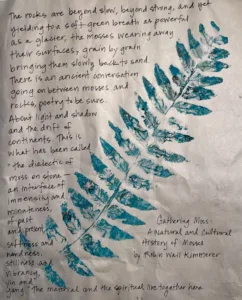 The rocks are beyond slow, beyond strong, and yet
yielding to a soft green breath as powerful
as a glacier, the mosses wearing away
their surfaces, grain by grain
bringing them slowly back to sand.
There is an ancient conversation
going on between mosses and
rocks, poetry to be sure.
About light and shadow
and the drift of
continents. This is
what has been called
"the dialectic of
moss on stone -
an interface of
immensity and
minuteness,
of past
and present,
softness and
hardness,
stillness and
vibrancy,
yin and
yang." The material and the spiritual live together here.
Gathering Moss
A Natural and Cultural
History of Mosses
by Robin Wall Kimmerer